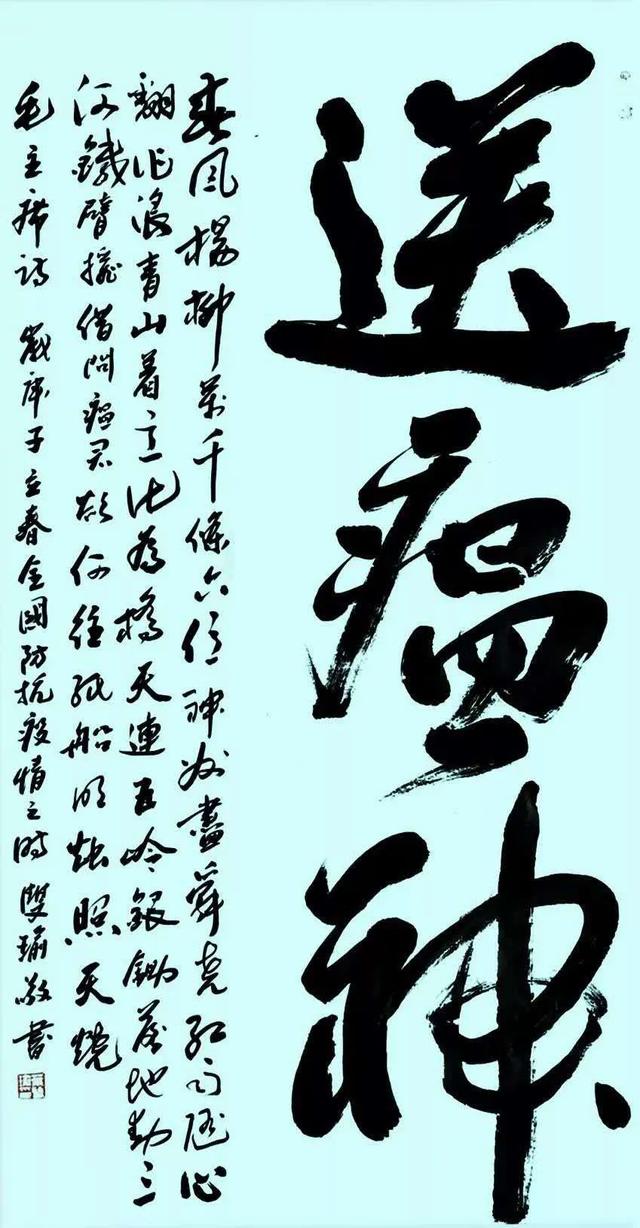 送瘟神
春風楊柳萬千條六億神州盡舜堯紅雨隨心
翻作浪青山着意化為橋天連五嶺銀鋤落地動三
河鐵臂搖借問瘟君欲何往紙船明燭照天燒
毛主席詩 歲庚子立春全國防抗疫情之時 雙瑜敬書